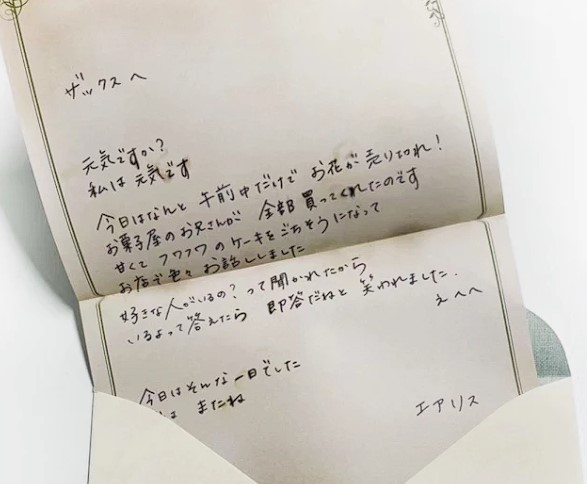 ザックスへ
元気ですか?
私は元気です
今日はなんと 午前中だけで お花が売り切れ!
お菓子屋のお兄さんが 全部買ってくれたのです
甘くて フワフワのケーキをごちそうになって
お店で色々 お話ししました
好きな人がいるの? って聞かれたから
いるよって答えたら 即答だねと 笑われました.
えへへ
今日はそんな一日でした
は またね
エアリス